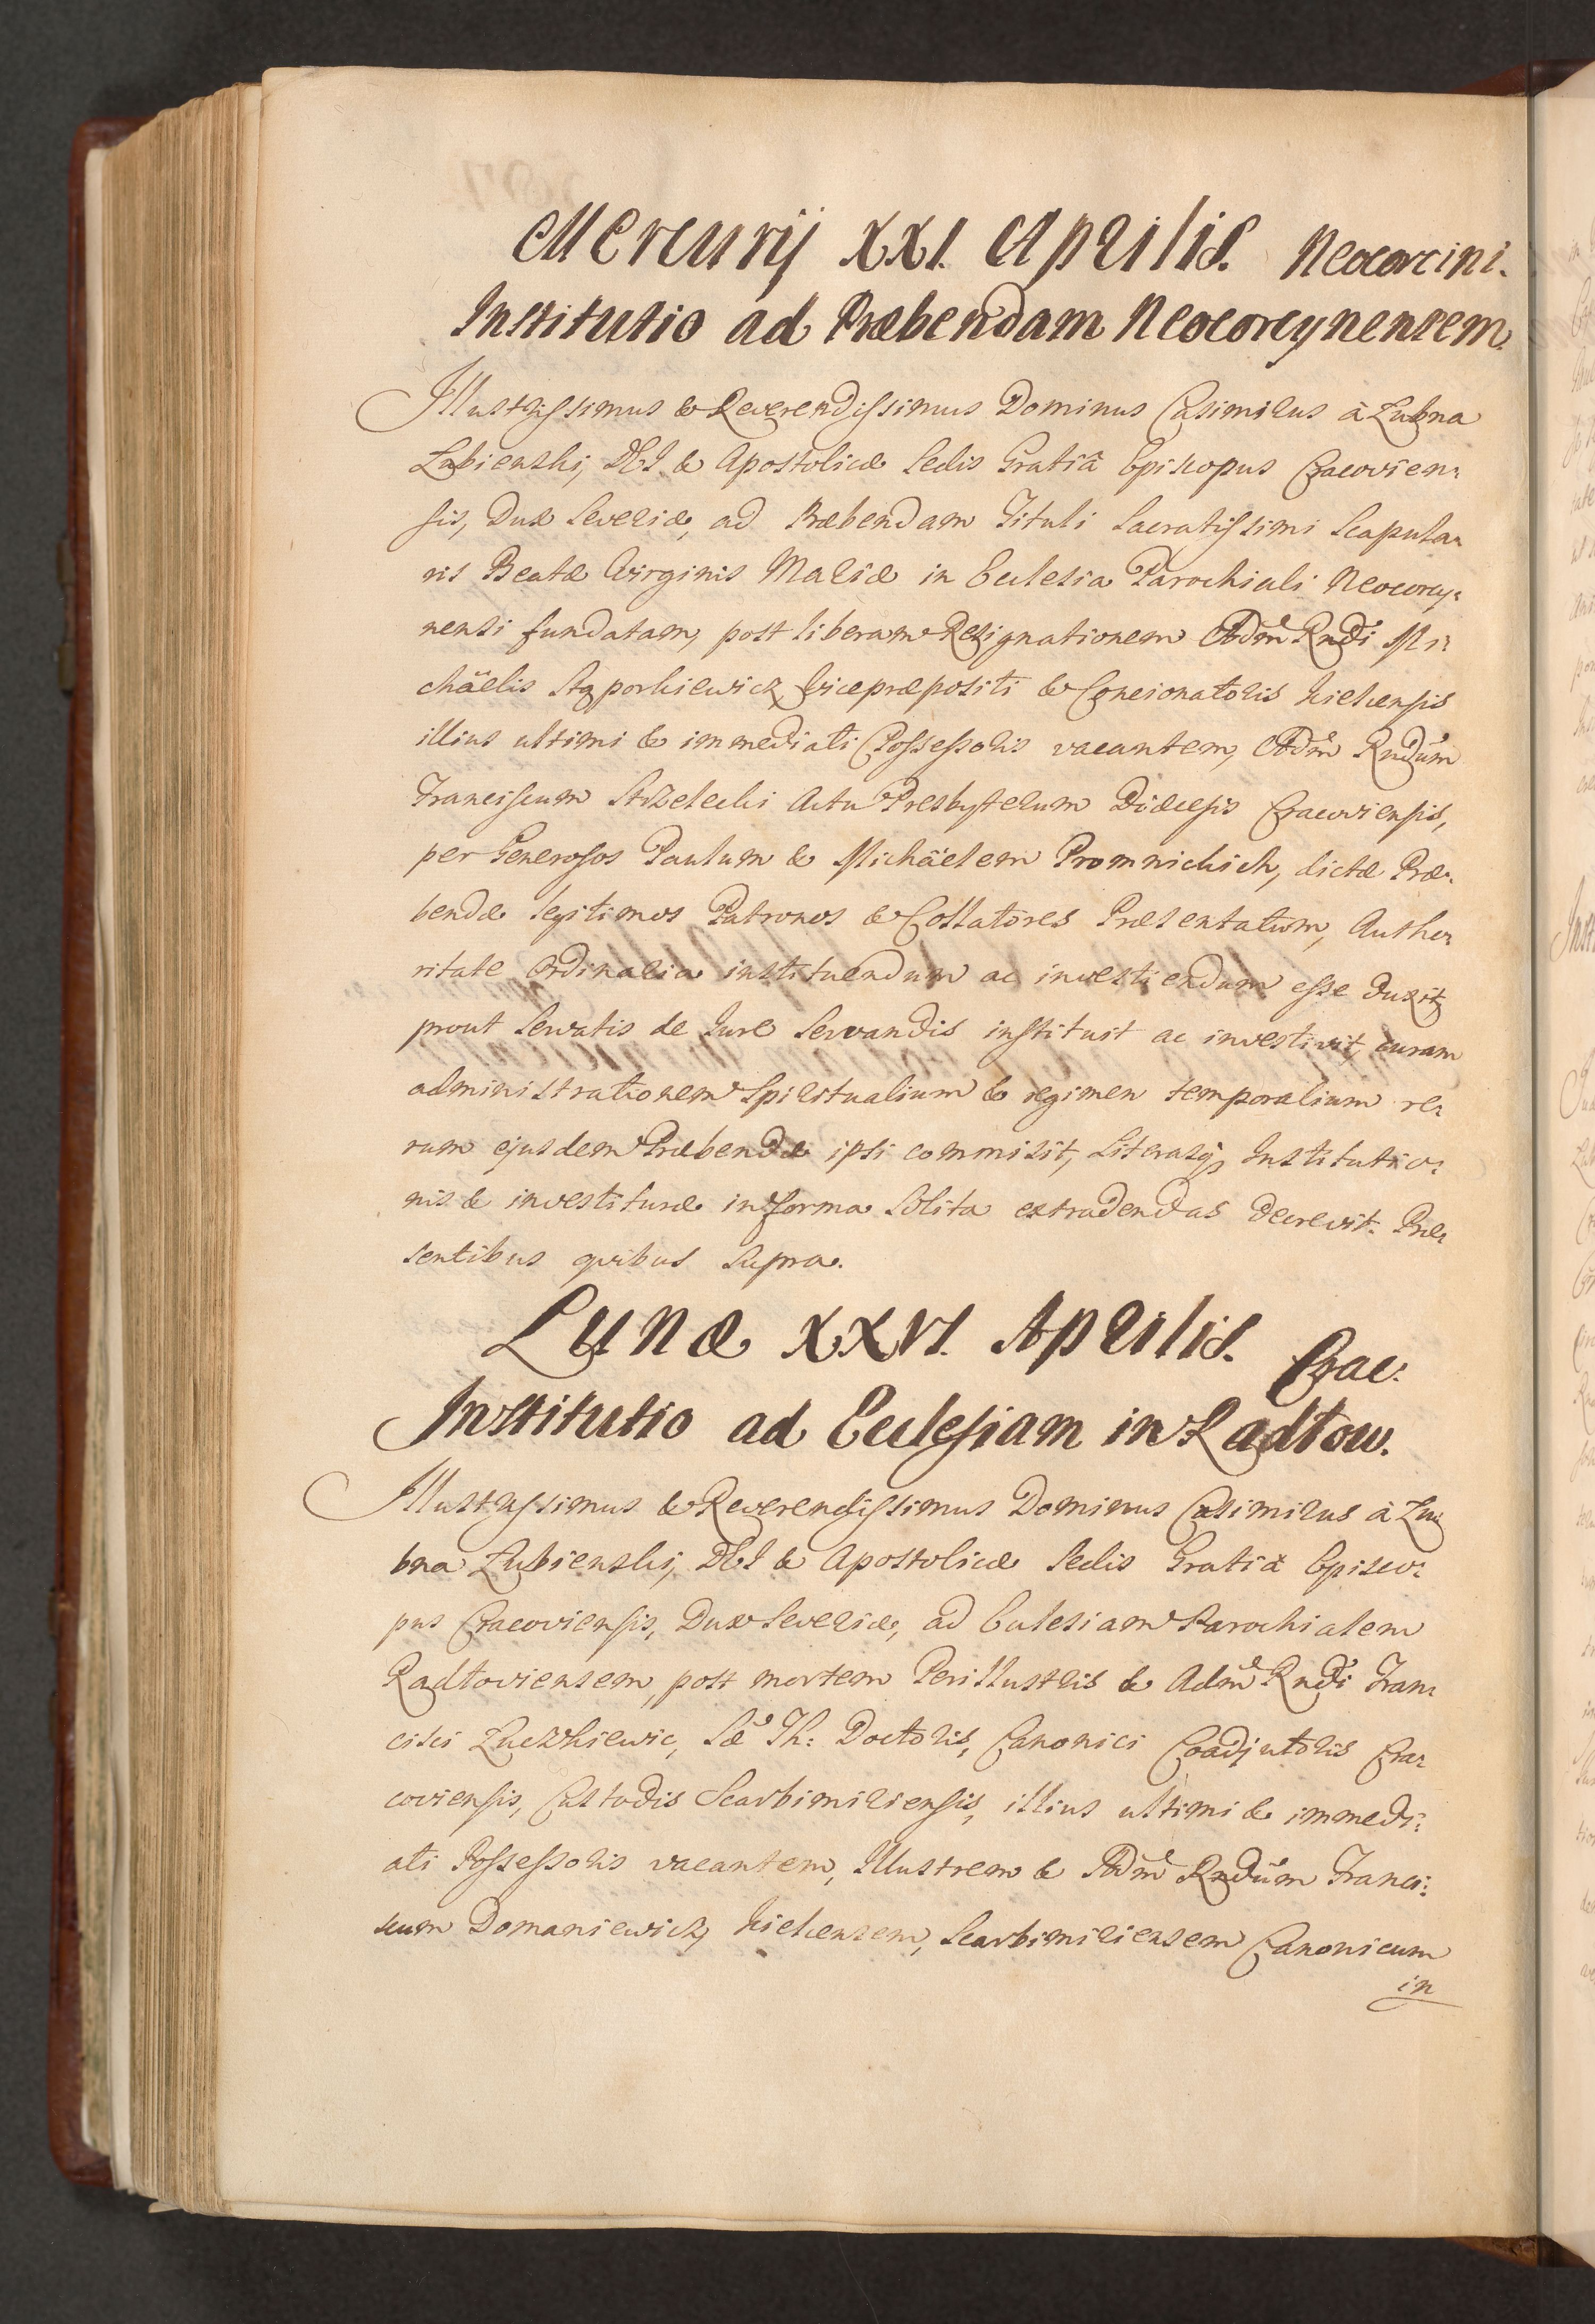 Mercurij XXI. Aprilis. Neocorcini.
Institutio ad Præbendam Neocorcynensem.
Illustrissimus & Reverendissimus Dominus Casimirus à Łubna
Łubienski, DEI & Apostolicæ Sedis Gratiâ Episcopus Cracovien:
sis, Dux Severiæ, ad Præbendam Tituli Sacratissimi Scapula:
ris Beatæ Virginis Mariæ in Ecclesia Parochiali Neocorcy:
nensi fundatam, post liberam Resignationem Adm Rndi Mi:
chäelis Vicepræpositi & Concionatoris Kielcensis
illius ultimi & immediati Possessoris vacantem, Adm Rndum
Franciscum Strzelecki Actu Presbyterum Diæcesis Cracoviensis,
per Generosos Paulum & Michäelem Promnickich, dictæ Præ:
bendæ legitimos Patronos & Collatores Præsentatum, Autho:
ritate Ordinaria instituendum ac investiendum esse duxit,
prout servatis de Jure servandis instituit ac investivit, curam
administrationem Spiritualium & regimen temporalium re:
rum ejusdem Præbendæ ipsi commisit, Literasq; Institutio:
nis & investituræ in forma solita extradendas decrevit. Præ:
sentibus quibus supra.
Lunæ XXVI. Aprilis. Crac:
Institutio ad Ecclesiam in Radłow.
Illustrissimus & Reverendissimus Dominus Casimirus à Łu:
bna Łubienski, DEI & Apostolicæ Sedis Gratiâ Episco:
pus Cracoviensis, Dux Severiæ, ad Ecclesiam Parochialem
Radłoviensem, post mortem Perillustris & Adm Rndi Fran:
cisci Łuczkiewic, Sæ Th: Doctoris, Canonici Coadjutoris Cra:
coviensis, Custodis Scarbimiriensis, illius ultimi & immedi:
ati Possessoris vacantem, Illustrem & Adm Rndum Franci:
scum Domaniewicz, Kielcensem, Scarbimiriensem Canonicum
in